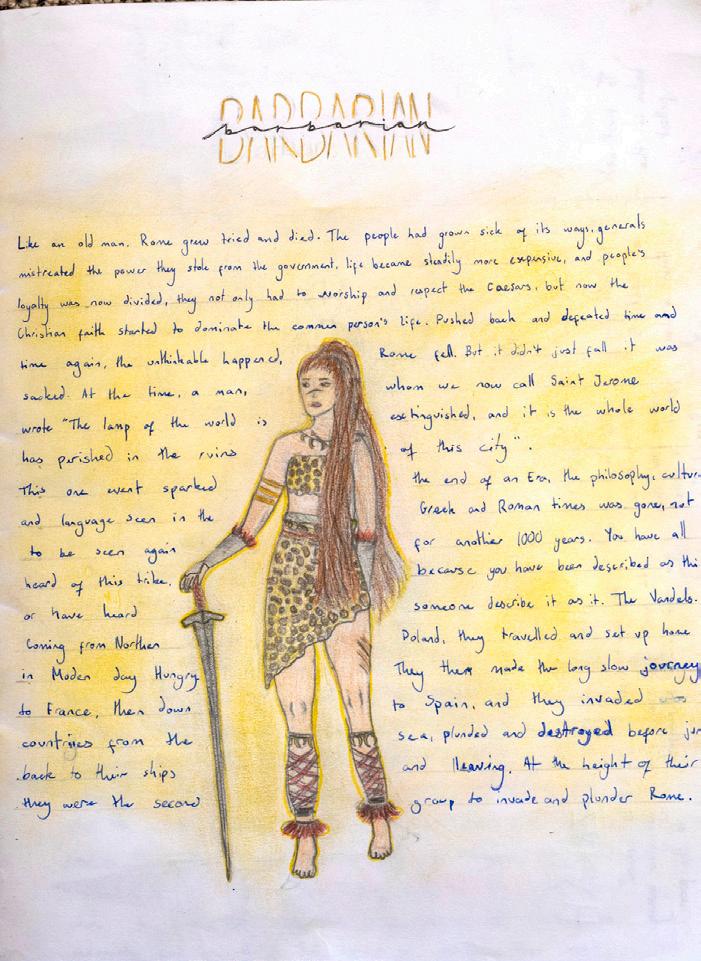 BARBARIAN
barbarian
Like an old man. Rome grew tried and died. The people had grown sick of its ways, generals
mistreated the power they stole from the government, life became steadily more expensive, and people's
loyalty was now divided, they not only had to worship and respect the Caesars, but now the
Christian faith started to dominate the common person's life. Pushed back and defeated time and
time again, the unthinkable happened, Rome fell. But it didn't just fall it was
sacked. At the time, a man, whom we now call Saint Jerome
wrote "The lamp of the world is extinguished, and it is the whole world
has perished in the ruins of this city".
This one event sparked the end of an Era, the philosophy, cultur
and language seen in the Greek and Roman times was gone, not
to be seen again for another 1000 years. You have all
heard of this tribe, because you have been described as thi
or have heard someone describe it as it. The Vandels.
Coming from Northen Poland, they travelled and set up home
in Moden day Hungry They then made the long slow journey
to France, then down to Spain, and they invaded
countries from the sea, plunded and destroyed before jum
back to their ships and leaving. At the height of their
they were the second group to invade and plunder Rome.